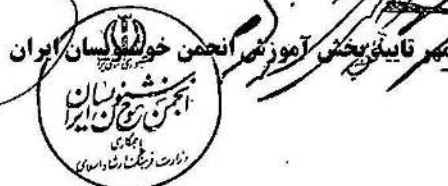 مهر تاییدی بخش آموزش انجمن خوشنویسان ایران
انجمن خوشنویسان ایران
با همکاری
وزارت فرهنگ و ارشاد اسلامی